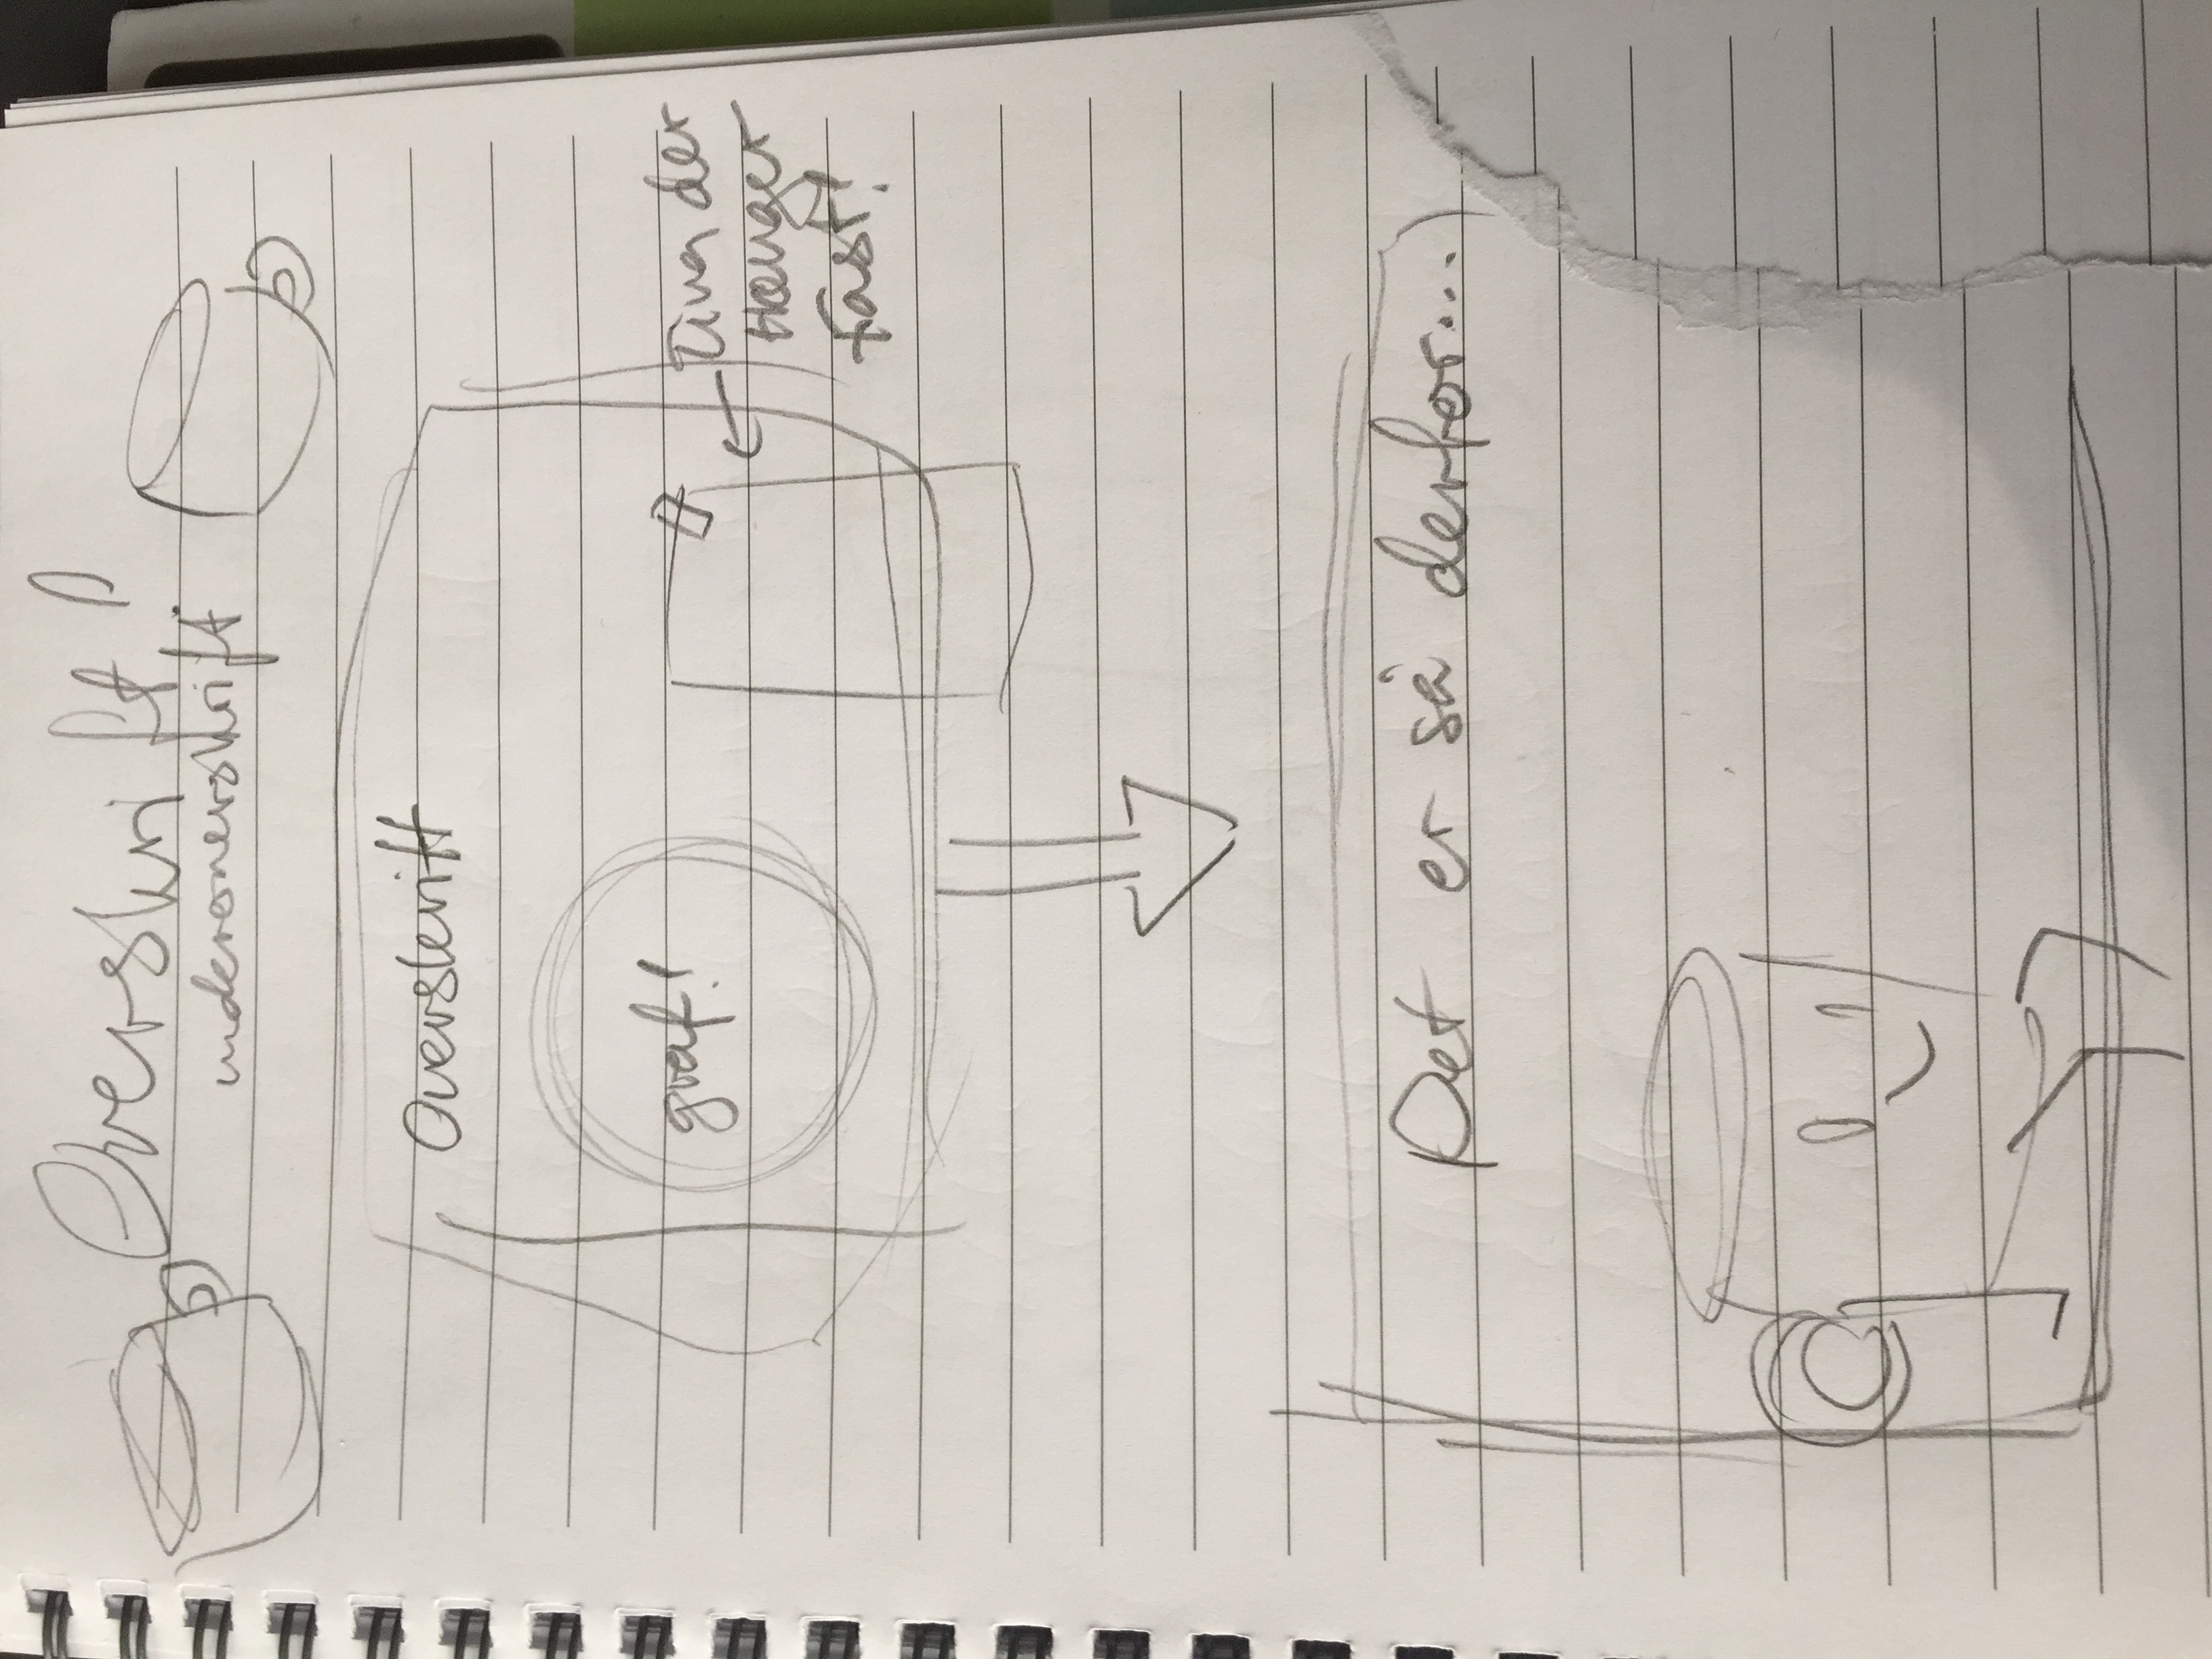 Overskrift!
underoverskrift
Overskrift
graf!
Ting der
Hænger
Fast!
Det er så derfor...